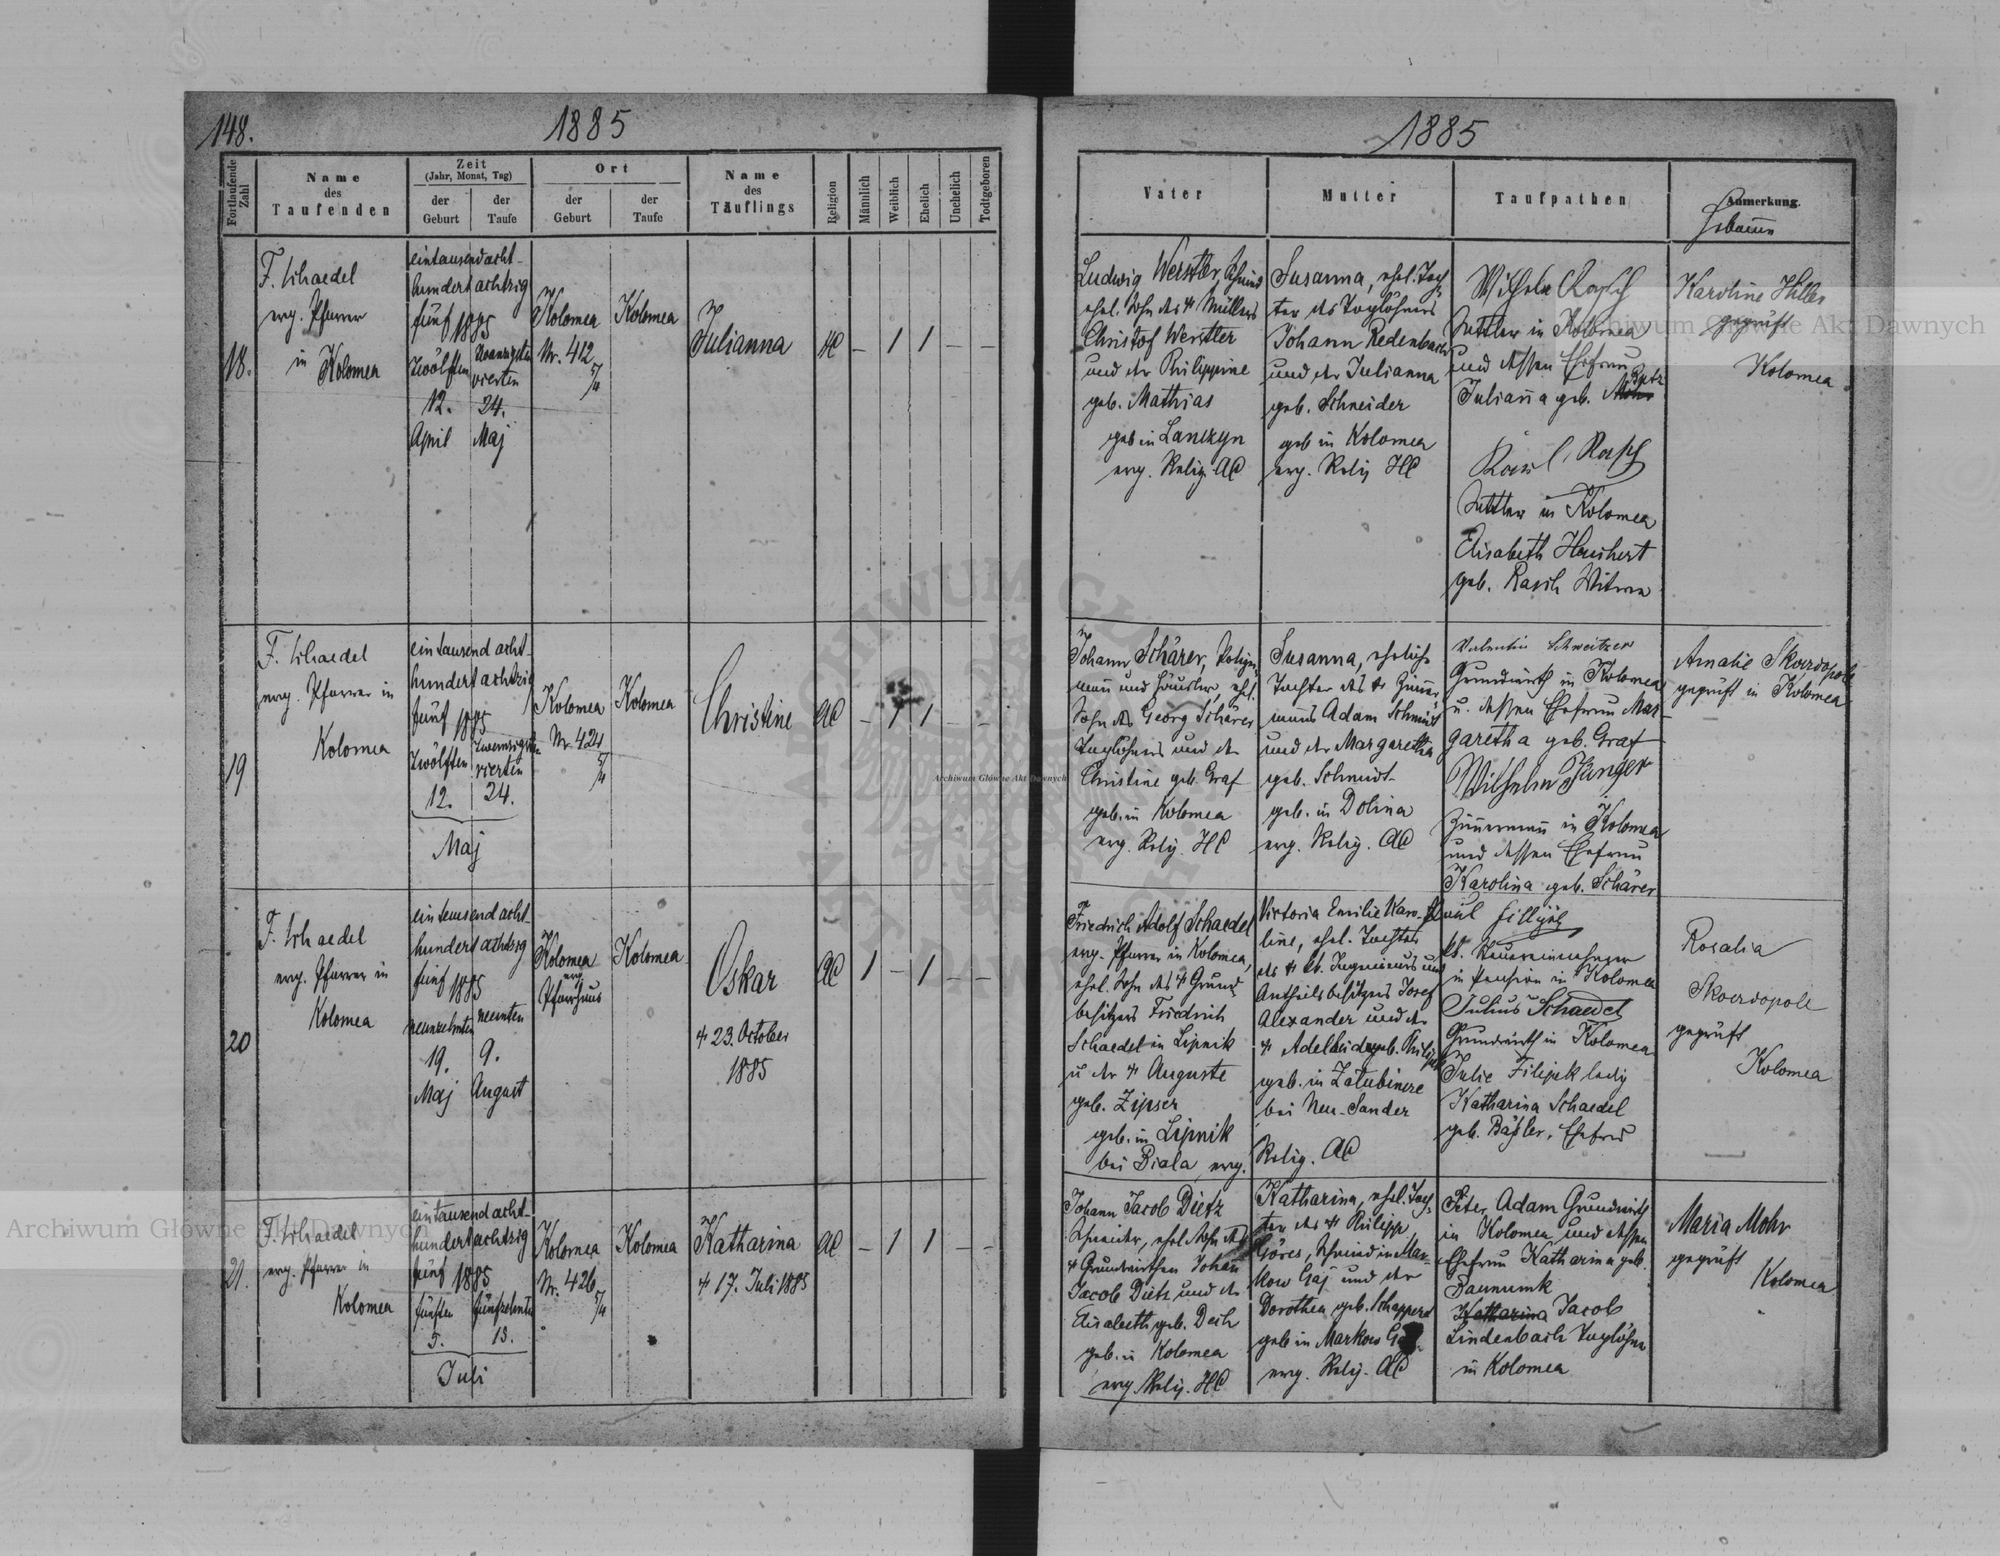 148.
1885
Fortlaufende Zahl
Name
des
Taufenden
Zeit
(Jahr, Monat, Tag)
der Geburt
der Taufe
Ort
der Geburt
der Taufe
Name
des
Täuflings
Religion
Männlich
Weiblich
Ehelich
Unehelich
Todtgeboren
18.
F. Schaedel
evg. Pfarrer
in Kolomea
eintausendacht-
hundertachtzig
fünf 1885
zwölften
12.
April
vierten
24.
Maj
Kolomea
Nr. 412
Kolomea
Julianna
HC
– 1 1 – –
19
F. Schaedel
evg. Pfarrer in
Kolomea
eintausendacht-
hundertachtzig
fünf 1885
zwölften
12.
vierten
24.
Maj
Kolomea
Nr. 424
Kolomea
Christine
AC
– 1 1 – –
20
F. Schaedel
evg. Pfarrer in
Kolomea
eintausendacht-
hundertachtzig
fünf 1885
neunzehnten
19.
Maj
neunten
9.
August
Kolomea
evg.
Pfarrhaus
Kolomea
Oskar
23. October
1885
AC
1 – 1 – –
21.
F. Schaedel
evg. Pfarrer in
Kolomea
eintausendacht-
hundertachtzig
fünf 1885
fünften
5.
13.
Juli
Kolomea
Nr. 426
Kolomea
Katharina
17. Juli 1885
AC
– 1 1 – –
1885
Vater
Mutter
Taufpathen
Anmerkung.
Ludwig Werstler, Schmied
ehel. Sohn des Müllers
Christof Werstler
und der Philippine
geb. Mathias
geb in Lanczyn
evg. Relig. AC
Susanna, ehel. Toch-
ter des Taglöhners
Johann Redenbach
und der Julianna
geb. Schneider
geb in Kolomea
evg. Relig HC
Sattler in Kolomea
und dessen Ehefrau
Julianna geb.
Karl Rasch
Sattler in Kolomea
Elisabeth
geb. Rasch Witwe
Karoline Hiller
geprüft
Kolomea
Johann Schärer,
Sohn des Georg Schärer
Taglöhners und der
Christine geb. Graf
geb. in Kolomea
evg. Relig. HC
Susanna, eheliche
Tochter des Zimmer-
manns Adam Schmidt
und der Margaretha
geb. Schmidt
geb. in Dolina
evg. Relig. AC
Valentin Schweitzer
Grundwirth in Kolomea
u. dessen Ehefrau Mar-
garetha geb. Graf
Wilhelm Jünger
Zimmermann in Kolomea
und dessen Ehefrau
Karolina geb. Schärer
Amalie Skoerdopole
geprüft in Kolomea
Friedrich Adolf Schaedel
evg. Pfarrer in Kolomea,
ehel. Sohn des Grund-
besitzers Friedrich
Schaedel in Lipnik
u der Auguste
geb. Zipser
geb. in Lipnik
bei Biala evg.
Victoria Emilie Karo-
line, ehel. Tochter
des kk. Ingenieurs und
Antheilsbesitzers Josef
Alexander und der
Adelheid geb.
geb. in
bei Neu-Sandez
Relig. AC
kk. Steuereinnehmer
in Pension in Kolomea
Julius Schaedel
Grundwirth in Kolomea
Julie Filipek ledig
Katharina Schaedel
geb. Bäßler, Ehefrau
Rosalia
Skoerdopole
geprüft
Kolomea
Johann Jacob Dietz
Schneider, ehel. Sohn des
Grundwirthen Johan
Jacob Dietz und der
Elisabeth geb. Desch
geb. in Kolomea
evg Relig. HC
Katharina, ehel. Toch-
ter des Philipp
Göres, Schmied in Mar-
kow Gaj und der
Dorothea geb.
geb in Markow
evg. Relig. AC
Peter Adam Grundwirth
in Kolomea und dessen
Ehefrau Katharina geb.
Katharina Jacob
Lindenbach Taglöhner
in Kolomea
Maria Mohr
geprüft
Kolomea
Archiwum Główne Akt Dawnych
Archiwum Główne Akt Dawnych
Archiwum Główne Akt Dawnych